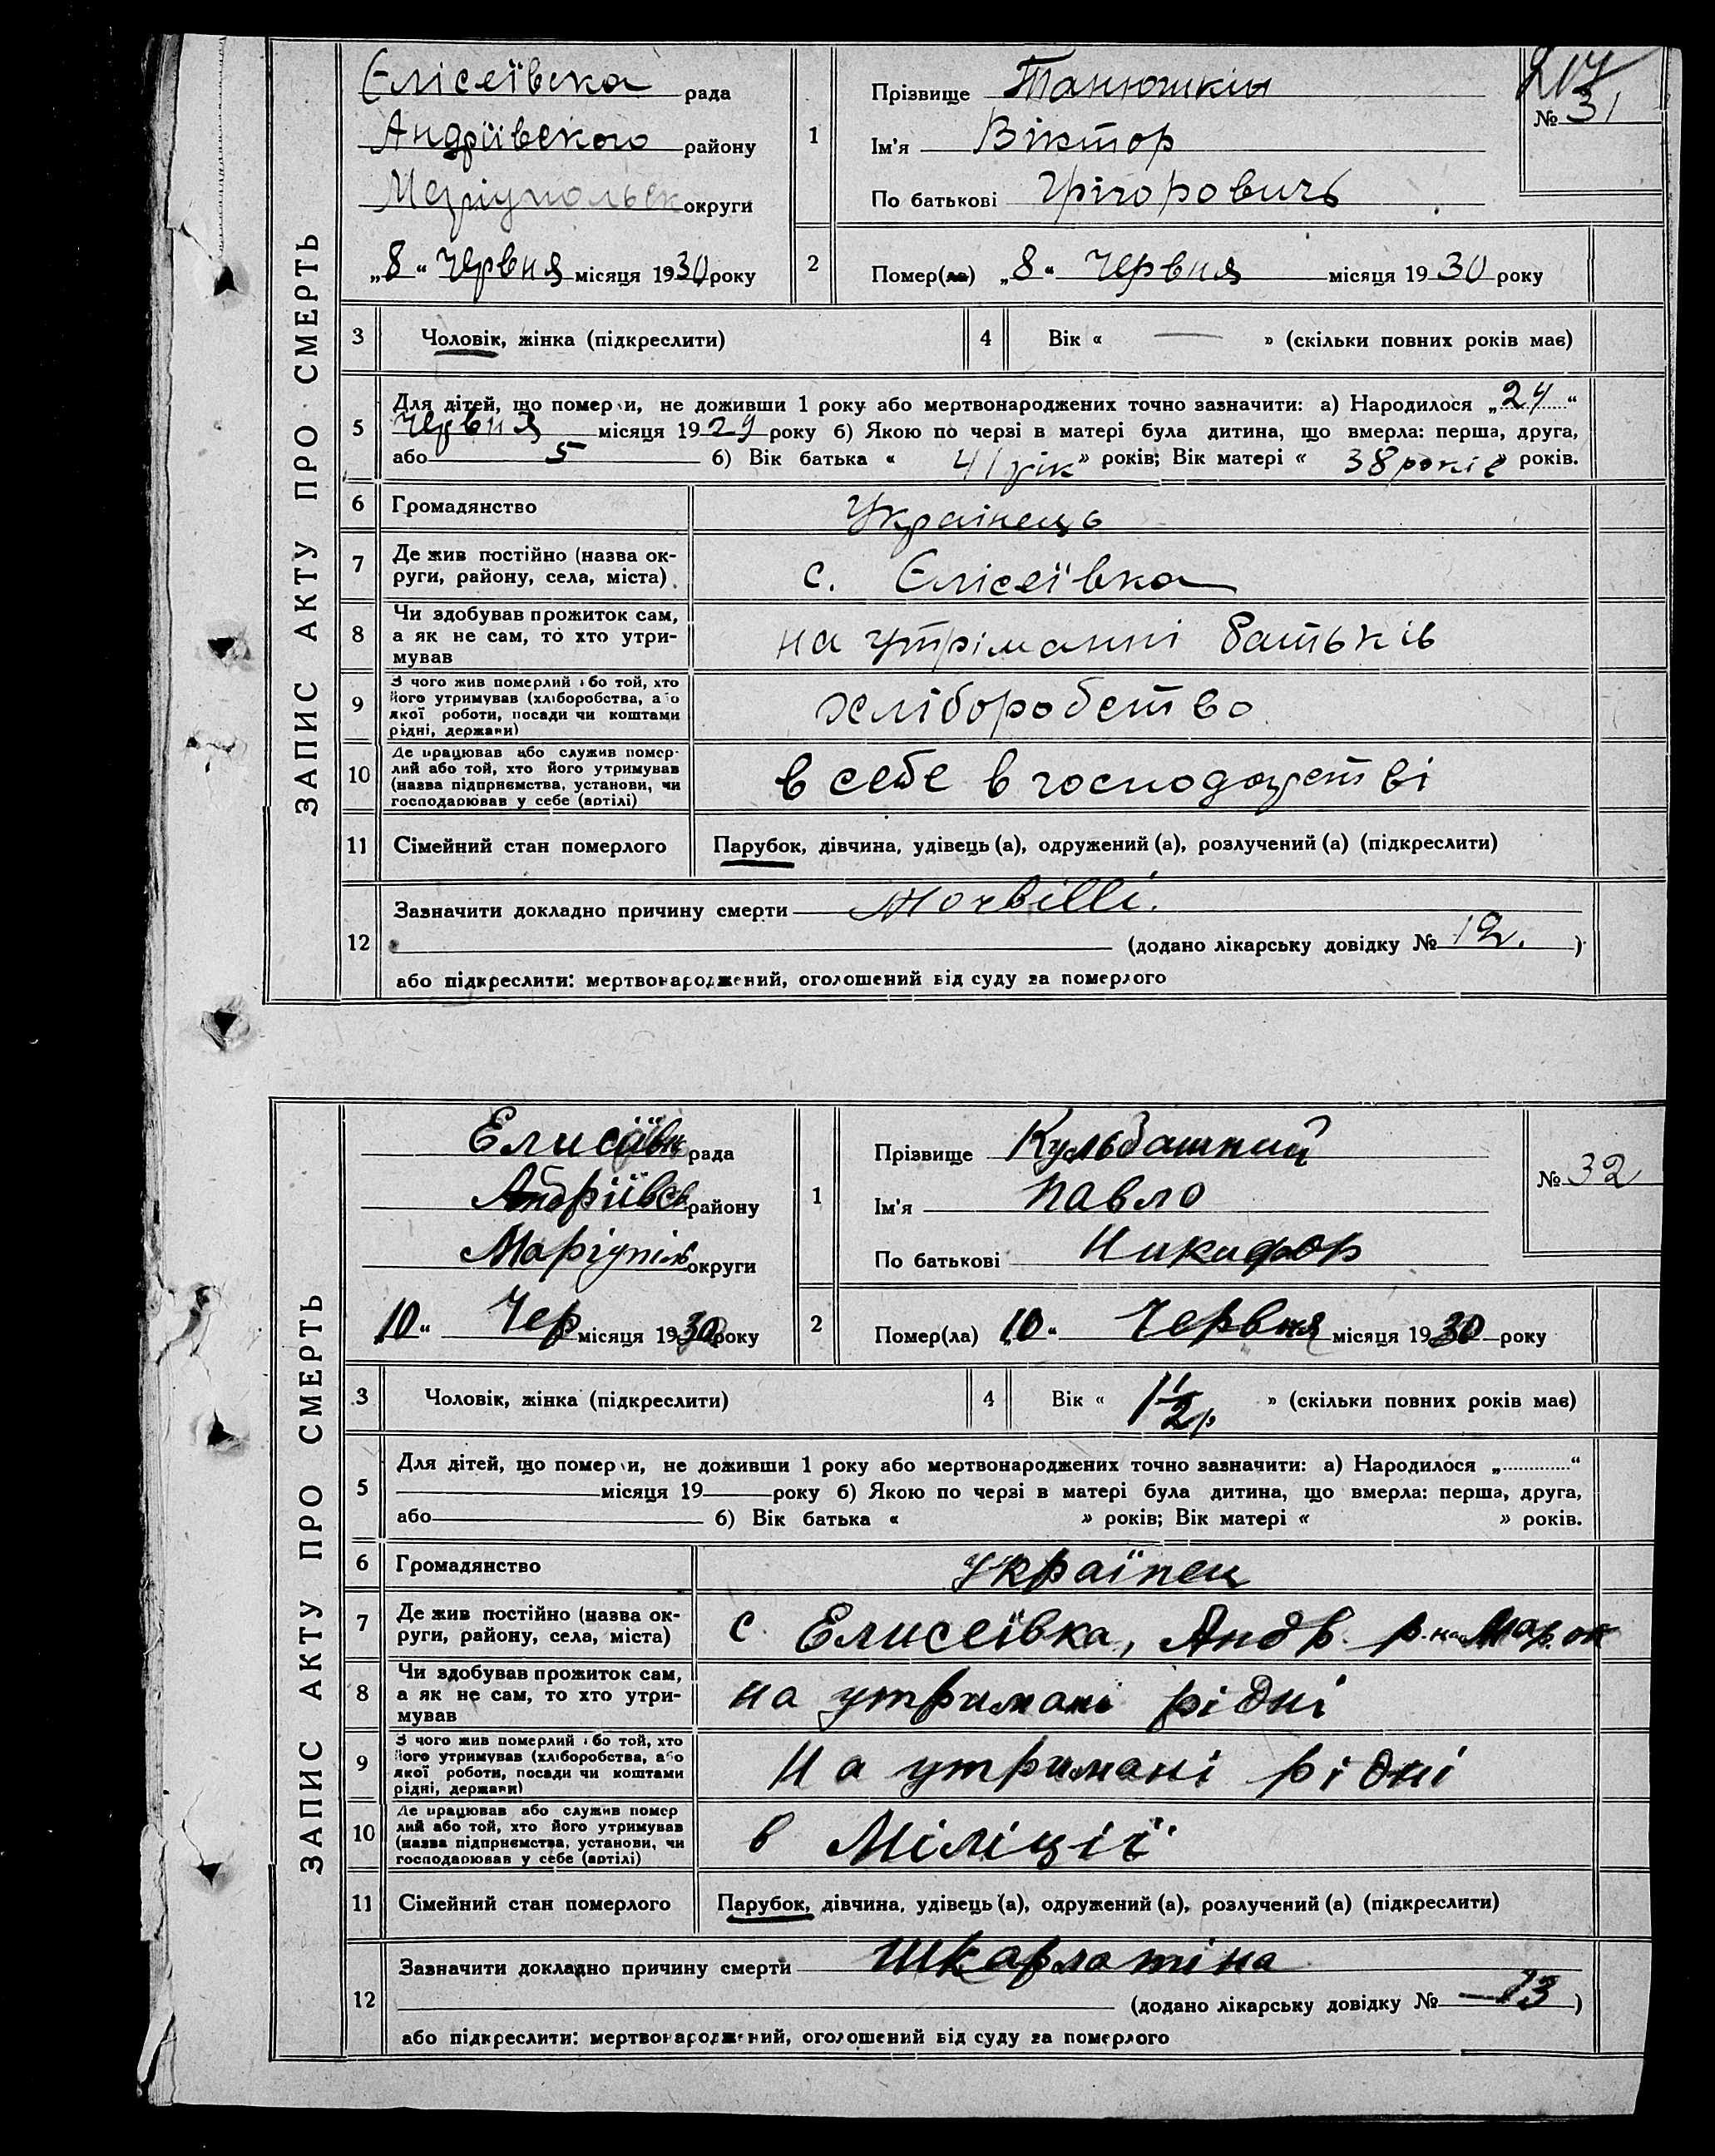 ЗАПИС АКТУ ПРО СМЕРТЬ
Єлісеївска рада
Андріївского району
Маріупольск округи
„8“ червня місяця 1930 року
1
Прізвище Танюшкін
Ім'я Віктор
По батькові Грігоровичь
217
№ 31
2
Помер(ла) „8“ червня місяця 1930 року
3 Чоловік, жінка (підкреслити)
4 Вік « — » (скільки повних років має)
5 Для дітей, що померли, не доживши 1 року або мертвонароджених точно зазначити: а) Народилося „24“
червня місяця 1929 року б) Якою по черзі в матері була дитина, що вмерла: перша, друга,
або 5 б) Вік батька « 41 рік » років; Вік матері « 38 років » років.
6 Громадянство Украінець
7 Де жив постійно (назва ок-
руги, району, села, міста) с. Єлісеївка
8 Чи здобував прожиток сам,
а як не сам, то хто утри-
мував на утріманні батьків
9 З чого жив померлий або той, хто
його утримував (хліборобства, або
якої роботи, посади чи коштами
рідні, держави) хліборобство
10 Де працював або служив помер-
лий або той, хто його утримував
(назва підприємства, установи, чи
господарював у себе (артілі) в себе в господарстві
11 Сімейний стан померлого Парубок, дівчина, удівець (а), одружений (а), розлучений (а) (підкреслити)
12 Зазначити докладно причину смерти Morbilli.
(додано лікарську довідку № 12. )
або підкреслити: мертвонароджений, оголошений від суду за померлого
ЗАПИС АКТУ ПРО СМЕРТЬ
Елисеївк рада
Андріївсь району
Маріупіль округи
10“ Чер місяця 1930 року
1
Прізвище Кульбашний
Ім'я Павло
По батькові Никифор
№ 32
2
Помер(ла) „10“ Червня місяця 1930 року
3 Чоловік, жінка (підкреслити)
4 Вік « 1 1/2 р » (скільки повних років має)
5 Для дітей, що померли, не доживши 1 року або мертвонароджених точно зазначити: а) Народилося „ “
місяця 19 року б) Якою по черзі в матері була дитина, що вмерла: перша, друга,
або б) Вік батька « » років; Вік матері « » років.
6 Громадянство Українец
7 Де жив постійно (назва ок-
руги, району, села, міста) с. Елисеївка, Андр. р.на Мар. ок
8 Чи здобував прожиток сам,
а як не сам, то хто утри-
мував на утримані рідні
9 З чого жив померлий або той, хто
його утримував (хліборобства, або
якої роботи, посади чи коштами
рідні, держави) На утримані рідні
10 Де працював або служив помер
лий або той, хто його утримував
(назва підприємства, установи, чи
господарював у себе (артілі) в Міліції
11 Сімейний стан померлого Парубок, дівчина, удівець (а), одружений (а), розлучений (а) (підкреслити)
12 Зазначити докладно причину смерти Шкарлатіна
(додано лікарську довідку № 13 )
або підкреслити: мертвонароджений, оголошений від суду за померлого